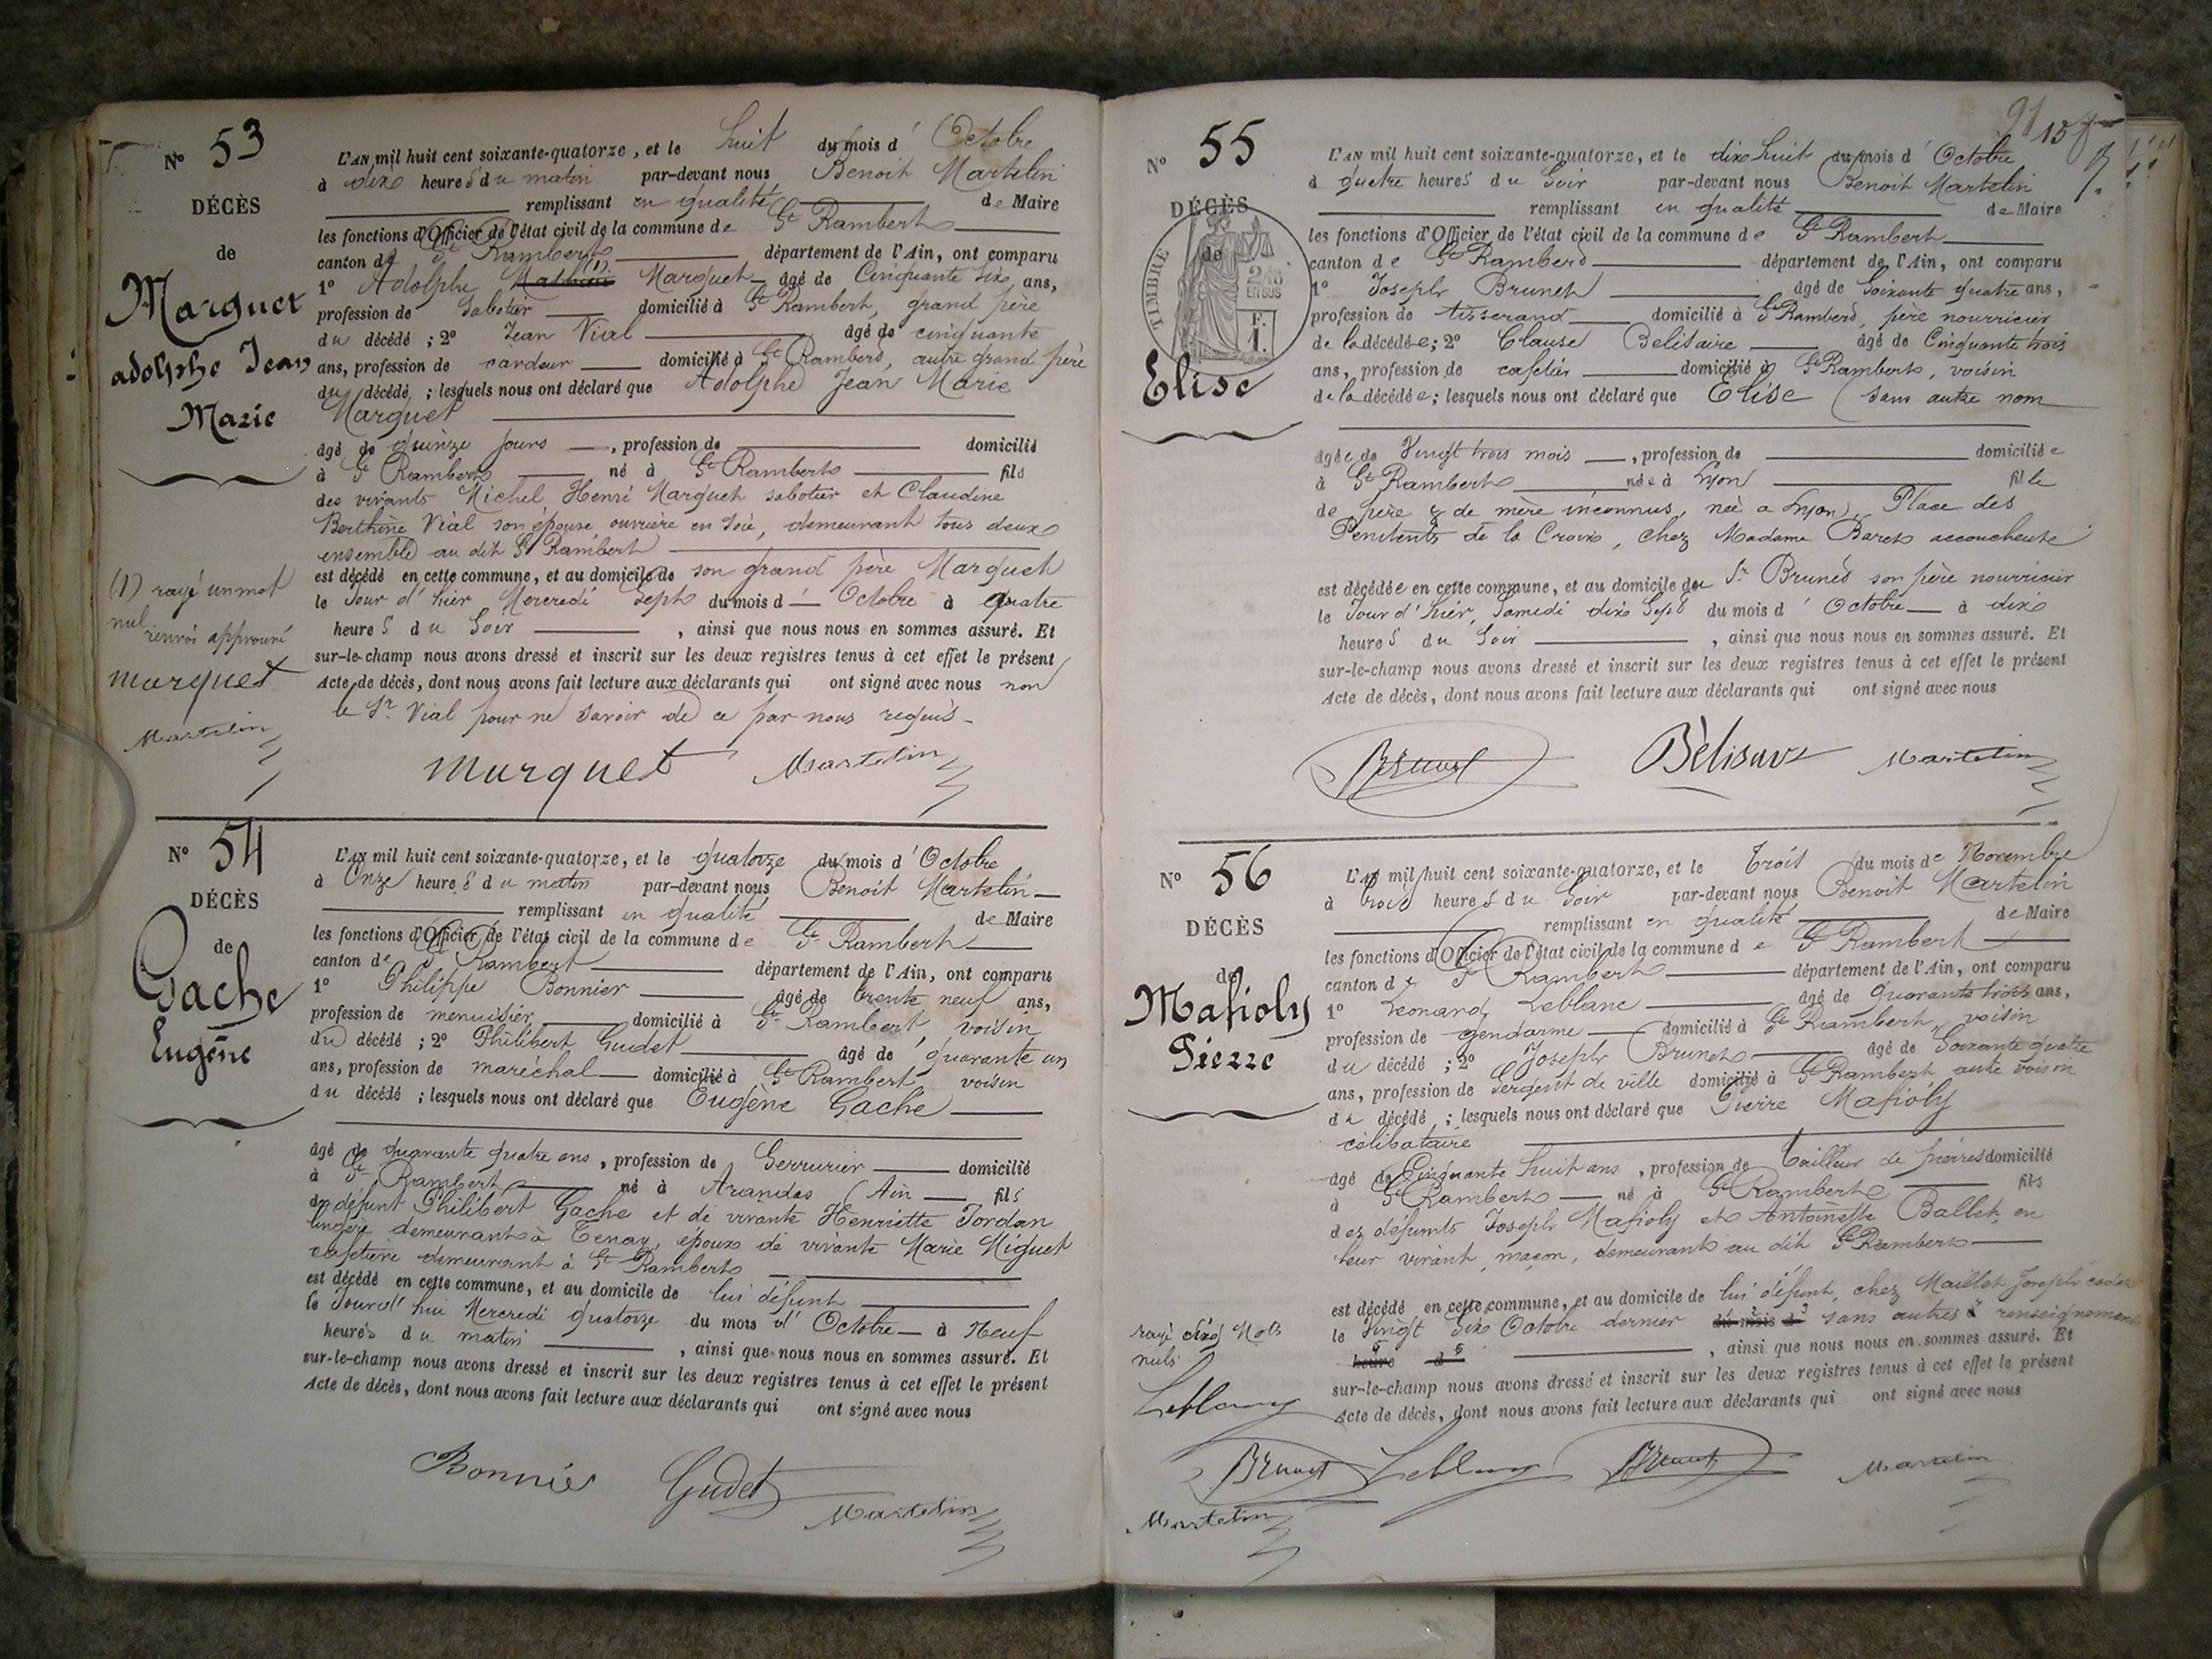 N° 53
DÉCÈS
de
Marguet
adolphe Jean
Marie
L'AN mil huit cent soixante-quatorze, et le huit du mois d' Octobre
à dix heures du matin par-devant nous Benoit Martelin
remplissant en qualité de Maire
les fonctions d'Officier de l'état civil de la commune de St Rambert
canton de St Rambert département de l'Ain, ont comparu
1° Adolphe (1) Marguet âgé de Cinquante six ans,
profession de Sabotier domicilié à St Rambert, grand père
du décédé ; 2° Jean Vial âgé de cinquante
ans, profession de cardeur domicilié à St Rambert, autre grand père
du décédé ; lesquels nous ont déclaré que Adolphe Jean Marie
Marguet
âgé de quinze jours , profession de domicilié
à St Rambert né à St Rambert fils
des vivants Michel Henri Marguet sabotier et Claudine
Berthine Vial son épouse ouvrière en soie, demeurant tous deux
ensemble au dit St Rambert
est décédé en cette commune, et au domicile de son grand père Marguet
le Jour d'hier Mercredi Sept du mois d Octobre à quatre
heures du Soir , ainsi que nous nous en sommes assuré. Et
sur-le-champ nous avons dressé et inscrit sur les deux registres tenus à cet effet le présent
Acte de décès, dont nous avons fait lecture aux déclarants qui ont signé avec nous non
le Sr Vial pour ne savoir de ce par nous requis.
(1) rayé un mot
nul
renvoi approuvé
Marguet
Martelin
Marguet Martelin
N° 54
DÉCÈS
de
Gache
Eugène
L'AN mil huit cent soixante-quatorze, et le quatorze du mois d' Octobre
à Onze heures du matin par-devant nous Benoit Martelin
remplissant en qualité de Maire
les fonctions d'Officier de l'état civil de la commune de St Rambert
canton de St Rambert département de l'Ain, ont comparu
1° Philippe Bonnier âgé de trente neuf ans,
profession de menuisier domicilié à St Rambert, voisin
du décédé ; 2° Philibert Gudet âgé de quarante un
ans, profession de maréchal domicilié à St Rambert voisin
du décédé ; lesquels nous ont déclaré que Eugène Gache
âgé de quarante quatre ans, profession de Serrurier domicilié
à St Rambert né à Arandas (Ain fils
de défunt Philibert Gache et de vivante Henriette Jordan
lingère demeurant à Tenay, époux de vivante Marie Miguet
cafetière demeurant à St Rambert
est décédé en cette commune, et au domicile de lui défunt
le Jourd'hui Mercredi quatorze du mois d' Octobre à Neuf
heures du matin , ainsi que nous nous en sommes assuré. Et
sur-le-champ nous avons dressé et inscrit sur les deux registres tenus à cet effet le présent
Acte de décès, dont nous avons fait lecture aux déclarants qui ont signé avec nous
Bonnier Gudet
Martelin
91 15
N° 55
DÉCÈS
de
TIMBRE
2/10
EN SUS
F.
1.
Elise
L'AN mil huit cent soixante-quatorze, et le dix huit du mois d' Octobre
à quatre heures du Soir par-devant nous Benoit Martelin
remplissant en qualité de Maire
les fonctions d'Officier de l'état civil de la commune de St Rambert
canton de St Rambert département de l'Ain, ont comparu
1° Joseph Brunet âgé de Soixante quatre ans,
profession de tisserand domicilié à St Rambert, père nourricier
de la décédée ; 2° Clause Belisaire âgé de Cinquante trois
ans, profession de cafetier domicilié à St Rambert, voisin
de la décédée ; lesquels nous ont déclaré que Elise (sans autre nom
âgée de Vingt trois mois , profession de domiciliée
à St Rambert née à Lyon fille
de père & de mère inconnus, née à Lyon, Place des
Penitents de la Croix, chez Madame Baret accoucheuse
est décédée en cette commune, et au domicile du Sr Brunet son père nourricier
le Jour d'hier, Samedi dix Sept du mois d' Octobre à dix
heures du Soir , ainsi que nous nous en sommes assuré. Et
sur-le-champ nous avons dressé et inscrit sur les deux registres tenus à cet effet le présent
Acte de décès, dont nous avons fait lecture aux déclarants qui ont signé avec nous
Brunet Bélisaire Martelin
N° 56
DÉCÈS
de
Mafioly
Pierre
L'AN mil huit cent soixante-quatorze, et le Trois du mois de Novembre
à trois heures du Soir par-devant nous Benoit Martelin
remplissant en qualité de Maire
les fonctions d'Officier de l'état civil de la commune de St Rambert
canton de St Rambert département de l'Ain, ont comparu
1° Leonard Leblanc âgé de quarante trois ans,
profession de gendarme domicilié à St Rambert, voisin
du décédé ; 2° Joseph Brunet âgé de Soixante quatre
ans, profession de Sergent de ville domicilié à St Rambert autre voisin
du décédé ; lesquels nous ont déclaré que Pierre Mafioly
célibataire
âgé de Cinquante huit ans , profession de tailleur de pierres domicilié
à St Rambert né à St Rambert fils
des défunts Joseph Mafioly et Antoinette Ballet, en
leur vivant maçon, demeurant au dit St Rambert
est décédé en cette commune, et au domicile de lui défunt, chez Maillet Joseph
le Vingt Six Octobre dernier du mois d sans autres renseignements
heure d , ainsi que nous nous en sommes assuré. Et
sur-le-champ nous avons dressé et inscrit sur les deux registres tenus à cet effet le présent
Acte de décès, dont nous avons fait lecture aux déclarants qui ont signé avec nous
rayé Mots
nuls
Leblanc
Brunet Leblanc Brunet Martelin
Martelin